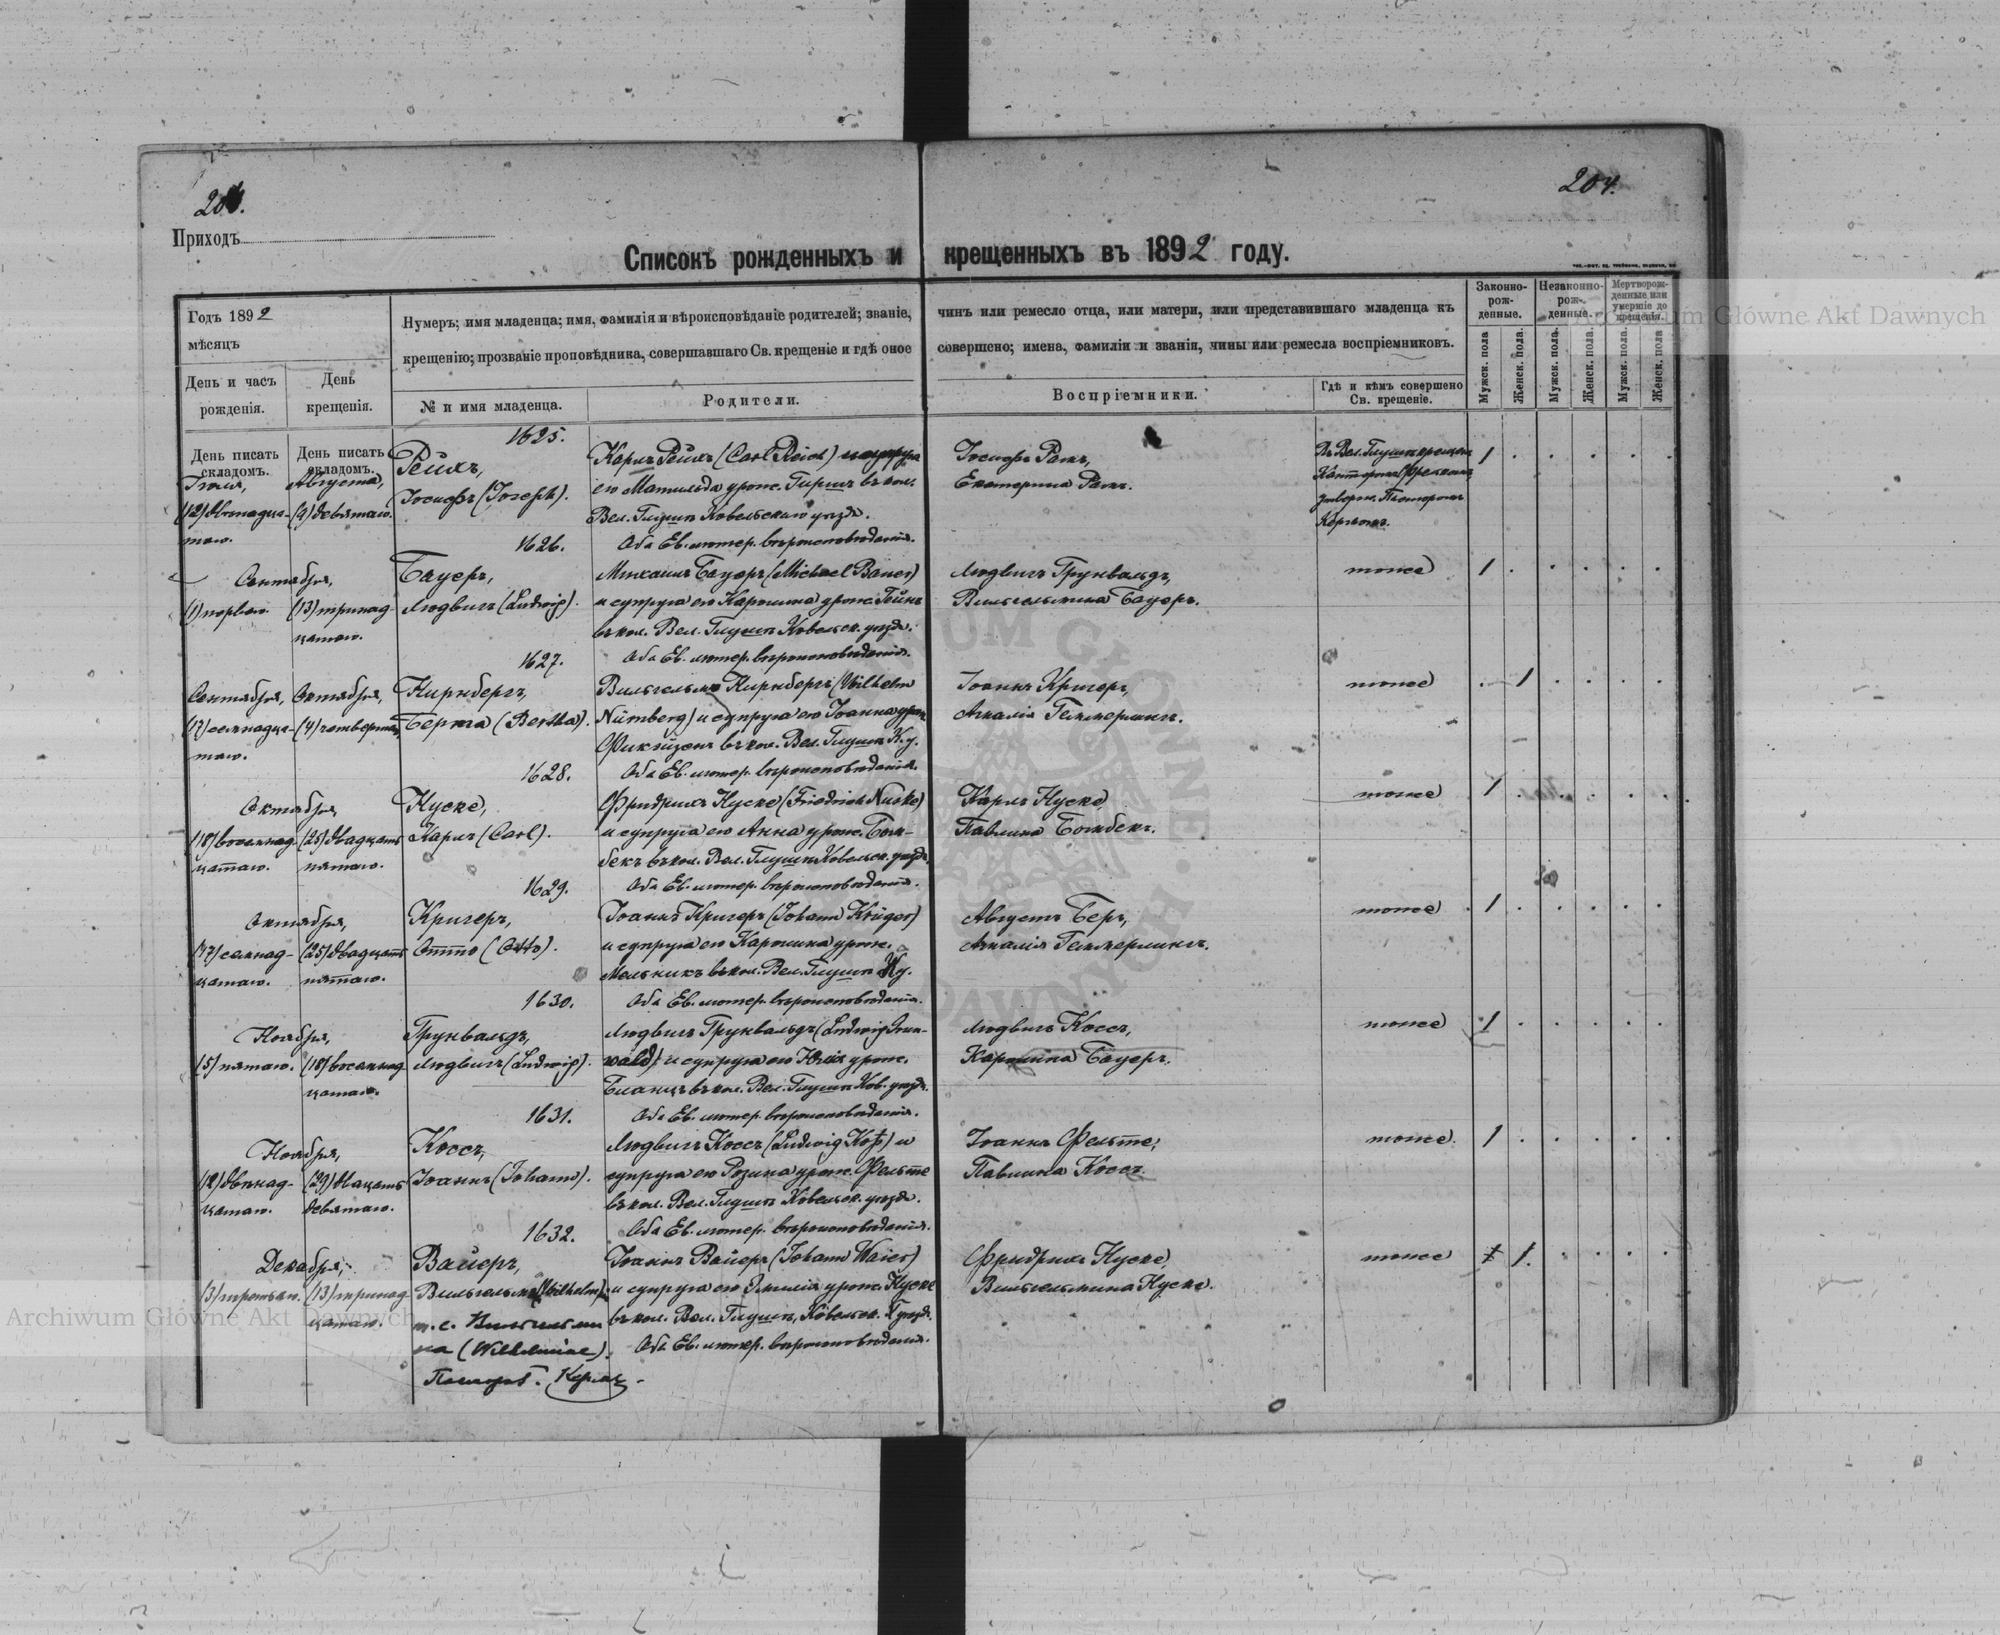 204.
Приходъ
Списокъ рожденныхъ и крещенныхъ въ 1892 году.
Годъ 1892
мѣсяцъ
День и часъ рожденія.
День крещенія.
Нумеръ; имя младенца; имя, фамилія и вѣроисповѣданіе родителей; званіе, чинъ или ремесло отца, или матери, или представившаго младенца къ
крещенію; прозваніе проповѣдника, совершавшаго Св. крещеніе и гдѣ оное совершено; имена, фамиліи и званія, чины или ремесла воспріемниковъ.
№ и имя младенца.
Родители.
Воспріемники.
Гдѣ и кѣмъ совершено Св. крещеніе.
Законно-рож-денные.
Незаконно-рож-денные.
Мертворож-денные или умершіе до крещенія.
Мужск. пола
Женск. пола.
Мужск. пола.
Женск. пола.
Мужск. пола.
Женск. пола
День писать складомъ.
День писать складомъ.
1625.
Іюля,
(12) двѣнадца-
таго.
Августа,
(9) девятаго.
Рейхъ,
Іосифъ (Joseph).
Карлъ Рейхъ (Carl Reich) и супруга
его Матильда урож. Гиршъ въ кол.
Вел. Глуша Ковельскаго уѣзда.
Оба Ев. лютер. вѣроисповѣданія.
Іосифъ
Екатерина
Въ Вел. Глуша крещенъ
Канторомъ
утвержд. Пасторомъ
Керномъ.
1
1626.
Сентября,
(1) перваго.
(13) тринад-
цатаго.
Бауеръ,
Людвигъ (Ludwig).
Михаилъ Бауеръ (Michael Bauer)
и супруга его Каролина урож. Гейнъ
въ кол. Вел. Глуша Ковельск. уѣзда.
Оба Ев. лютер. вѣроисповѣданія.
Людвигъ Грунвальдъ,
Вильгельмина Бауеръ.
тоже
1
1627.
Сентября,
(17) семнадца-
таго.
Октября,
(4) четвертаго,
Нирнбергъ,
Берта (Bertha).
Вильгельмъ Нирнбергъ (Wilhelm
Nürnberg) и супруга его Іоанна урож.
въ кол. Вел. Глуша К.у.
Оба Ев. лютер. вѣроисповѣданія.
Іоаннъ Кригеръ,
Амалія Геммерлингъ.
тоже
1
1628.
Октября,
(18) восемнад-
цатаго.
(25) двадцать
пятаго.
Нуске,
Карлъ (Carl).
Фридрихъ Нуске (Friedrich Nuske)
и супруга его Анна урож. Бом-
бекъ въ кол. Вел. Глуша Ковельск. уѣзда.
Оба Ев. лютер. вѣроисповѣданія.
Карлъ Нуске,
Павлина Бомбекъ.
тоже
1
1629.
Октября,
(17) семнад-
цатаго.
(25) двадцать
пятаго.
Кригеръ,
Отто (Otto).
Іоаннъ Кригеръ (Johann Krüger)
и супруга его Каролина урож.
Мельникъ въ кол. Вел. Глуша К.у.
Оба Ев. лютер. вѣроисповѣданія.
Августъ Беръ,
Амалія Геммерлингъ.
тоже
1
1630.
Ноября,
(5) пятаго.
(18) восемнад
цатаго.
Грунвальдъ,
Людвигъ (Ludwig).
Людвигъ Грунвальдъ (Ludwig Grun-
wald) и супруга его Юлія урож.
Бланцъ въ кол. Вел. Глуша Ков. уѣзда.
Оба Ев. лютер. вѣроисповѣданія.
Людвигъ Коссъ,
Каролина Бауеръ.
тоже
1
1631.
Ноября,
(12) двѣнад-
цатаго.
(29) двацать
девятаго.
Коссъ,
Іоаннъ (Johann).
Людвигъ Коссъ (Ludwig Koß) и
супруга его Розина урож. Фельтке
въ кол. Вел. Глуша Ковельск. уѣзда.
Оба Ев. лютер. вѣроисповѣданія.
Іоаннъ Фельтке,
Павлина Коссъ.
тоже.
1
1632.
Декабря,
(3) третьяго.
(13) тринад
цатаго.
Вайеръ,
Вильгельмъ (Wilhelm),
т. е. Вильгельми
на (Wilhelmine).
Пасторъ. Кернъ.
Іоаннъ Вайеръ (Johann Waier)
и супруга его Эмилія урож. Нуске
въ кол. Вел. Глуша, Ковельск. уѣзда.
Оба Ев. лютер. вѣроисповѣданія.
Фридрихъ Нуске,
Вильгельмина Нуске.
тоже
1.
Archiwum Główne Akt Dawnych
Archiwum Główne Akt Dawnych